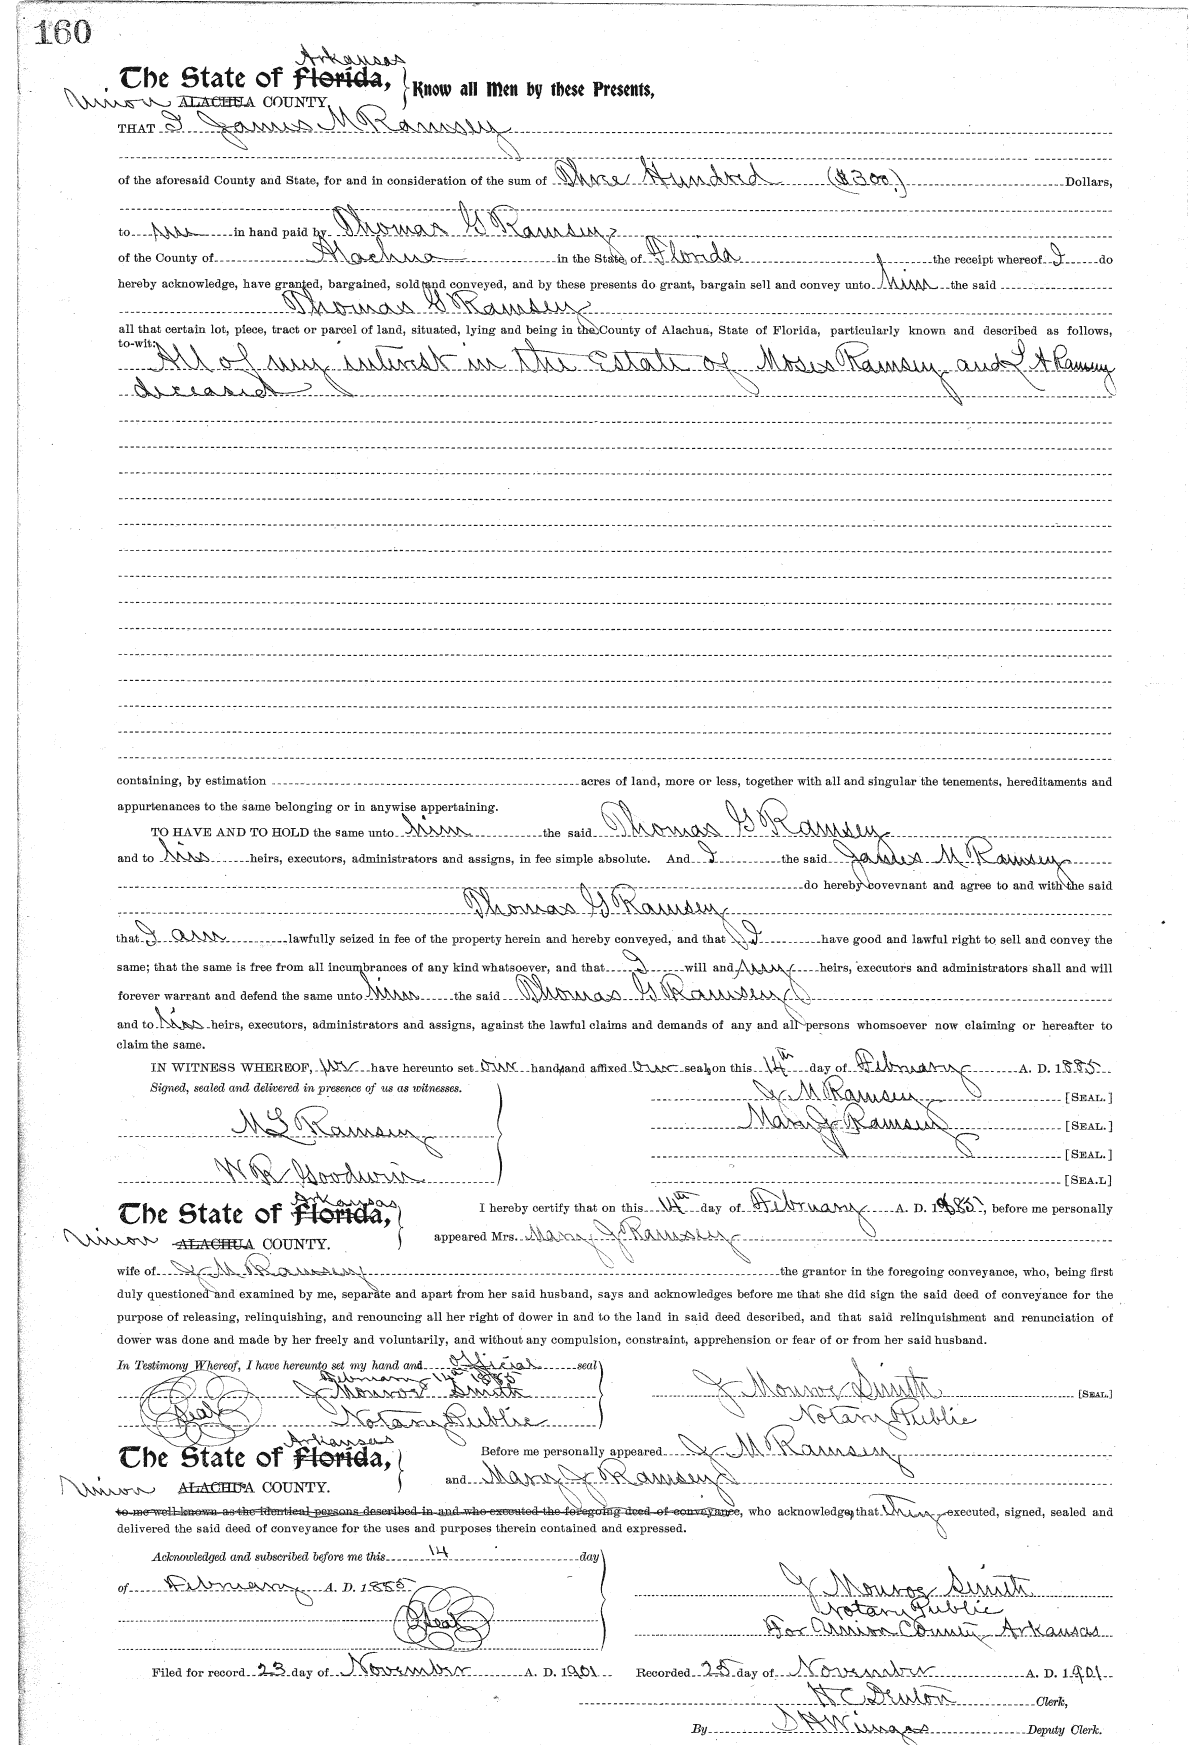 160
Arkansas
The State of Florida, Know all Men by these Presents,
Union ALACHUA COUNTY.
THAT I James M Ramsey
of the aforesaid County and State, for and in consideration of the sum of Three Hundred ($300.) Dollars,
to me in hand paid by Thomas G Ramsey
of the County of Alachua in the State of Florida the receipt whereof I do
hereby acknowledge, have granted, bargained, sold and conveyed, and by these presents do grant, bargain sell and convey unto him the said
Thomas G Ramsey
all that certain lot, piece, tract or parcel of land, situated, lying and being in the County of Alachua, State of Florida, particularly known and described as follows,
to-wit: All of my interest in the Estate of Moses Ramsey and L A Ramsey
deceased
containing, by estimation acres of land, more or less, together with all and singular the tenements, hereditaments and
appurtenances to the same belonging or in anywise appertaining.
TO HAVE AND TO HOLD the same unto him the said Thomas G Ramsey
and to his heirs, executors, administrators and assigns, in fee simple absolute. And I the said James M Ramsey
do hereby covevnant and agree to and with the said
Thomas G Ramsey
that I am lawfully seized in fee of the property herein and hereby conveyed, and that I have good and lawful right to sell and convey the
same; that the same is free from all incumbrances of any kind whatsoever, and that I will and my heirs, executors and administrators shall and will
forever warrant and defend the same unto him the said Thomas G Ramsey
and to his heirs, executors, administrators and assigns, against the lawful claims and demands of any and all persons whomsoever now claiming or hereafter to
claim the same.
IN WITNESS WHEREOF, we have hereunto set our hand and affixed our seal on this 14th day of February A. D. 1885
Signed, sealed and delivered in presence of us as witnesses.
J M Ramsey [SEAL.]
M L Ramsey Mary J Ramsey [SEAL.]
[SEAL.]
W R Goodwin [SEA.L]
Arkansas
The State of Florida, I hereby certify that on this 14th day of February A. D. 1885, before me personally
Union ALACHUA COUNTY. appeared Mrs. Mary J Ramsey
wife of J M Ramsey the grantor in the foregoing conveyance, who, being first
duly questioned and examined by me, separate and apart from her said husband, says and acknowledges before me that she did sign the said deed of conveyance for the
purpose of releasing, relinquishing, and renouncing all her right of dower in and to the land in said deed described, and that said relinquishment and renunciation of
dower was done and made by her freely and voluntarily, and without any compulsion, constraint, apprehension or fear of or from her said husband.
In Testimony Whereof, I have hereunto set my hand and official seal
February 14th 1885
J Monroe Smith J Monroe Smith [SEAL.]
Seal Notary Public Notary Public
Arkansas
The State of Florida, Before me personally appeared J M Ramsey
Union ALACHUA COUNTY. and Mary J Ramsey
to me well known as the identical persons described in and who executed the foregoing deed of conveyance, who acknowledge that they executed, signed, sealed and
delivered the said deed of conveyance for the uses and purposes therein contained and expressed.
Acknowledged and subscribed before me this 14 day
of February A. D. 1885 J Monroe Smith
Seal Notary Public
For Union County Arkansas
Filed for record 23 day of November A. D. 1901 Recorded 25 day of November A. D. 1901
H C Denton Clerk,
By S H Wienges Deputy Clerk.